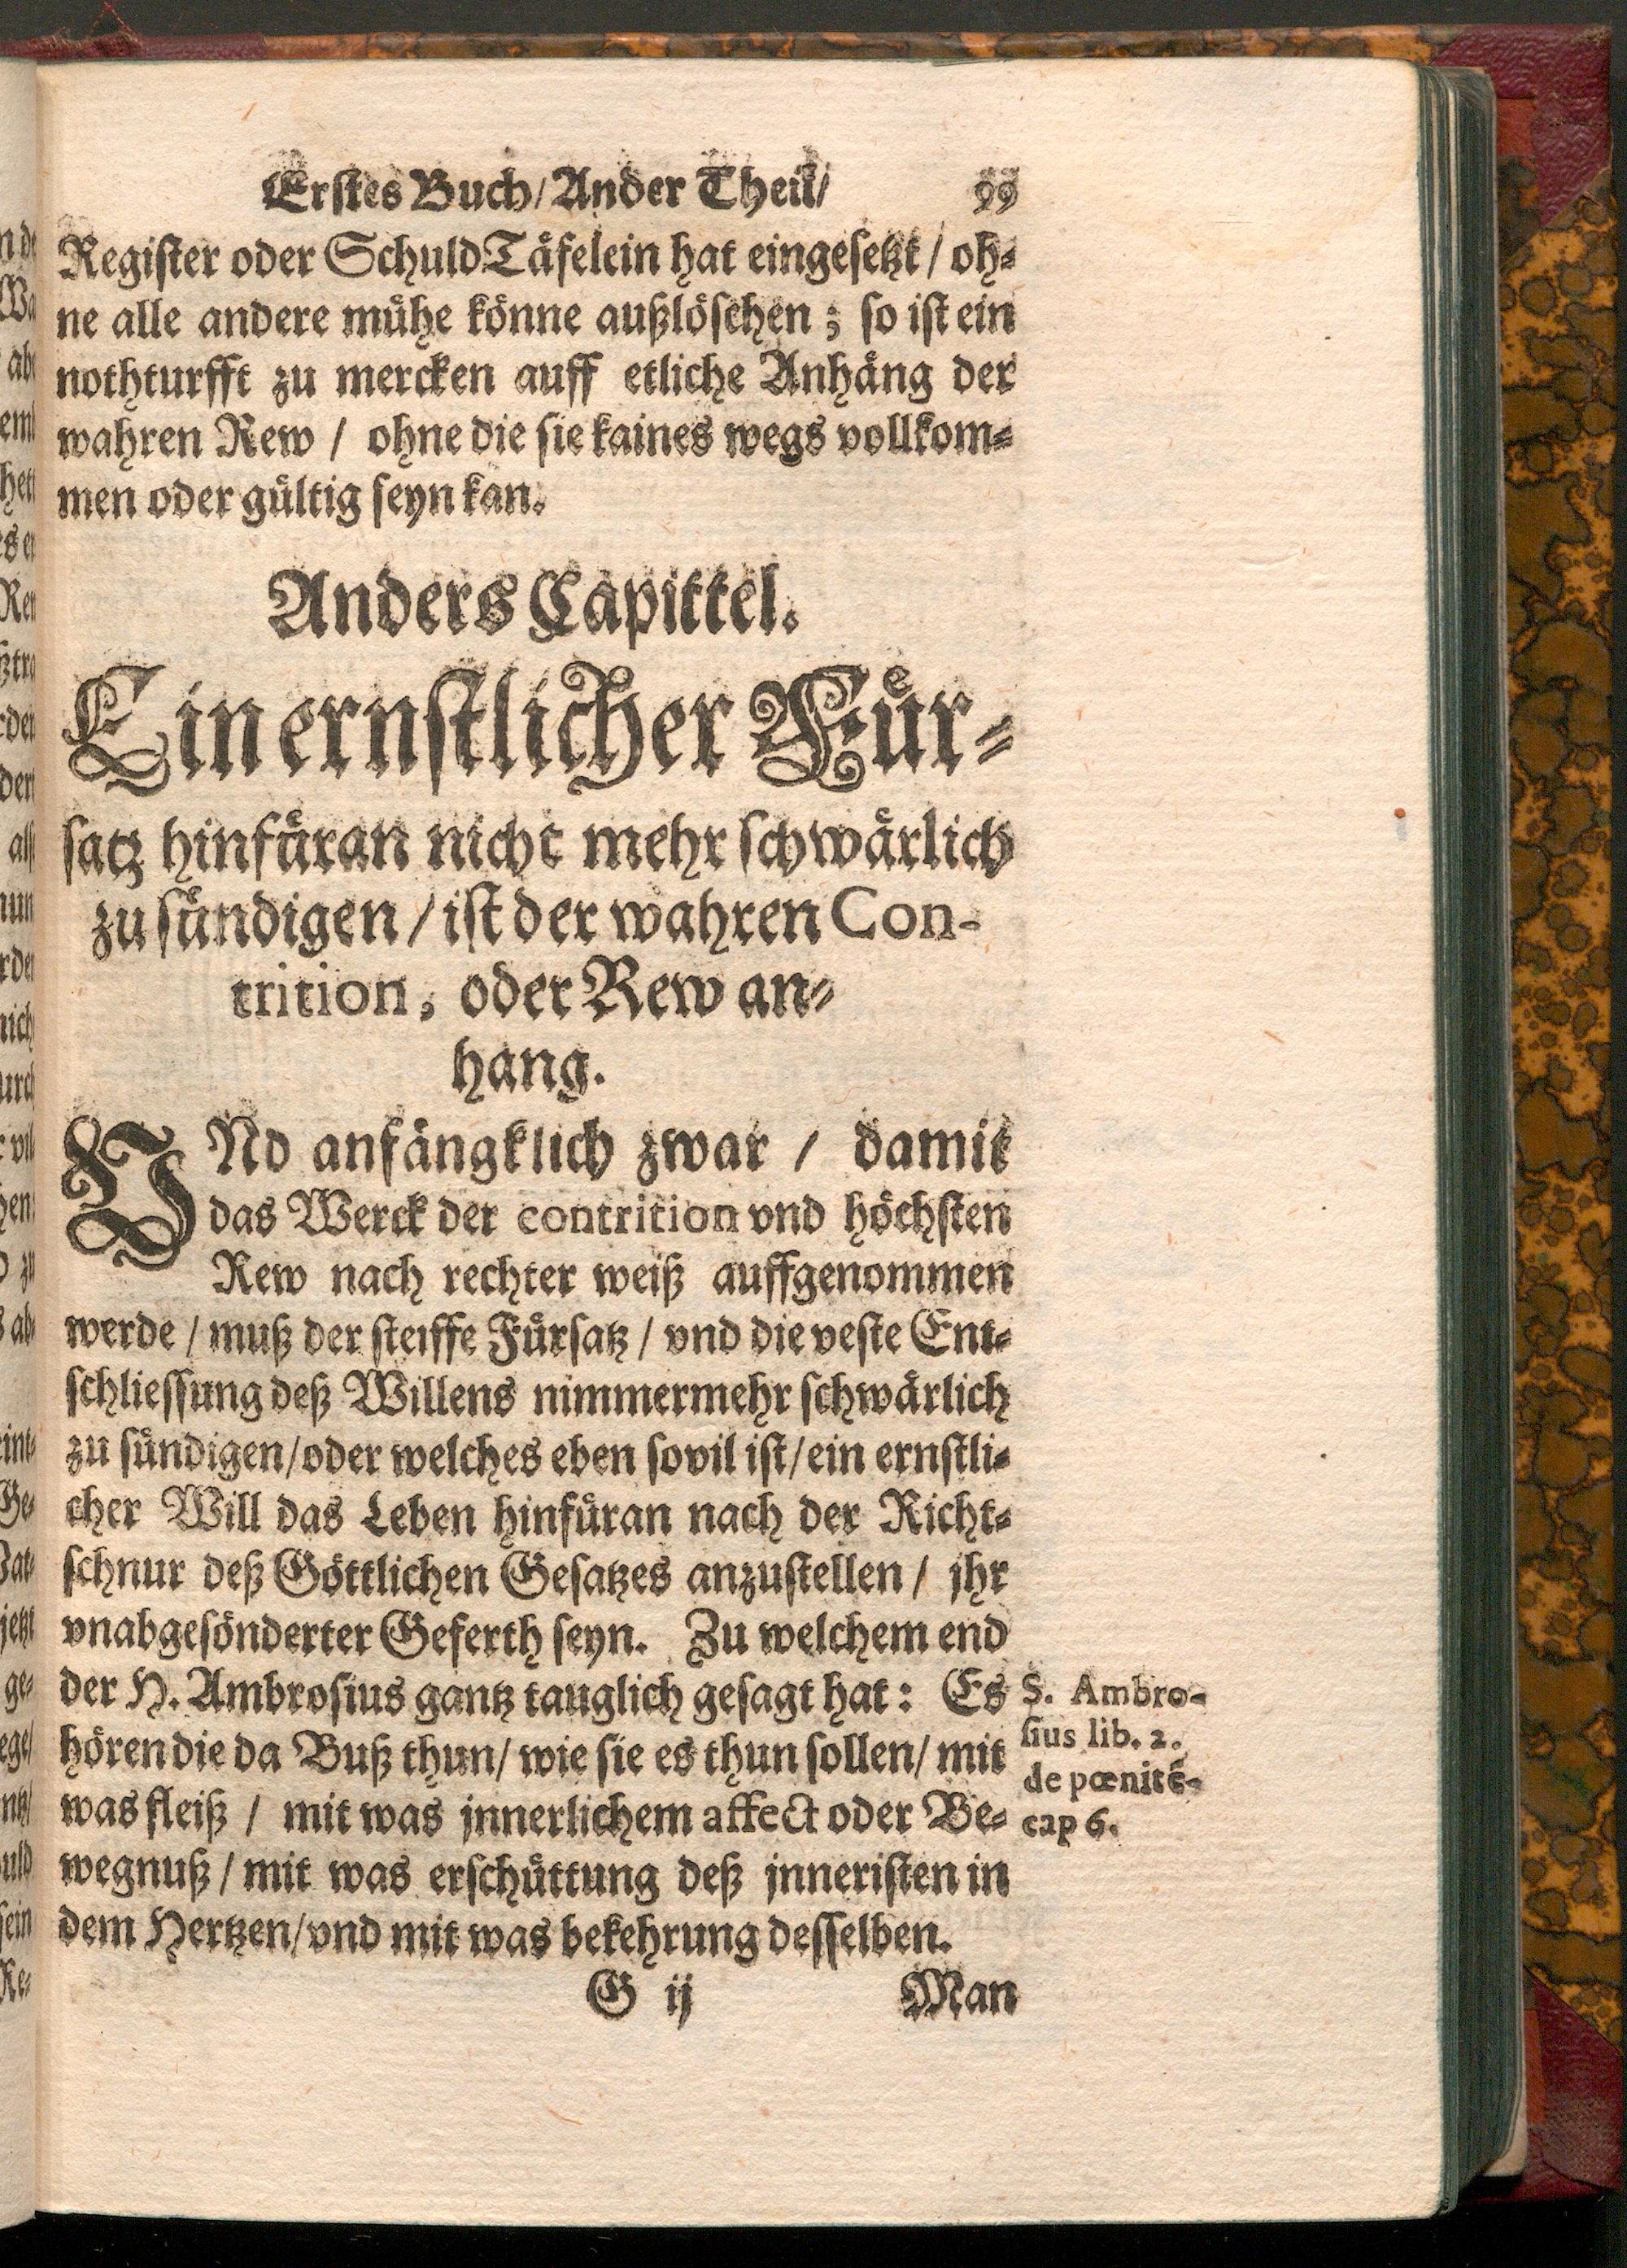 Erstes Buch/ Ander Theil/ 99
Register oder SchuldTäfelein hat eingesetzt / oh-
ne alle andere mühe könne außlöschen; so ist ein
nothturfft zu mercken auff etliche Anhäng der
wahren Rew / ohne die sie kaines wegs vollkom-
men oder gültig seyn kan.
Anders Capittel.
Ein ernstlicher Für-
satz hinfüran nicht mehr schwärlich
zu sündigen / ist der wahren Con-
trition, oder Rew an-
hang.
VNd anfängklich zwar / damit
das Werck der contrition vnd höchsten
Rew nach rechter weiß auffgenommen
werde / muß der steiffe Fürsatz / vnd die veste Ent-
schliessung deß Willens nimmermehr schwärlich
zu sündigen/oder welches eben sovil ist/ein ernstli-
cher Will das Leben hinfüran nach der Richt-
schnur deß Göttlichen Gesatzes anzustellen / jhr
vnabgesönderter Geferth seyn. Zu welchem end
der H. Ambrosius gantz tauglich gesagt hat: Es
hören die da Buß thun/ wie sie es thun sollen/ mit
was fleiß / mit was jnnerlichem affect oder Be-
wegnuß / mit was erschüttung deß jnneristen in
dem Hertzen/vnd mit was bekehrung desselben.
S. Ambro-
sius lib. 2.
de pœnitē-
cap 6.
G ij Man